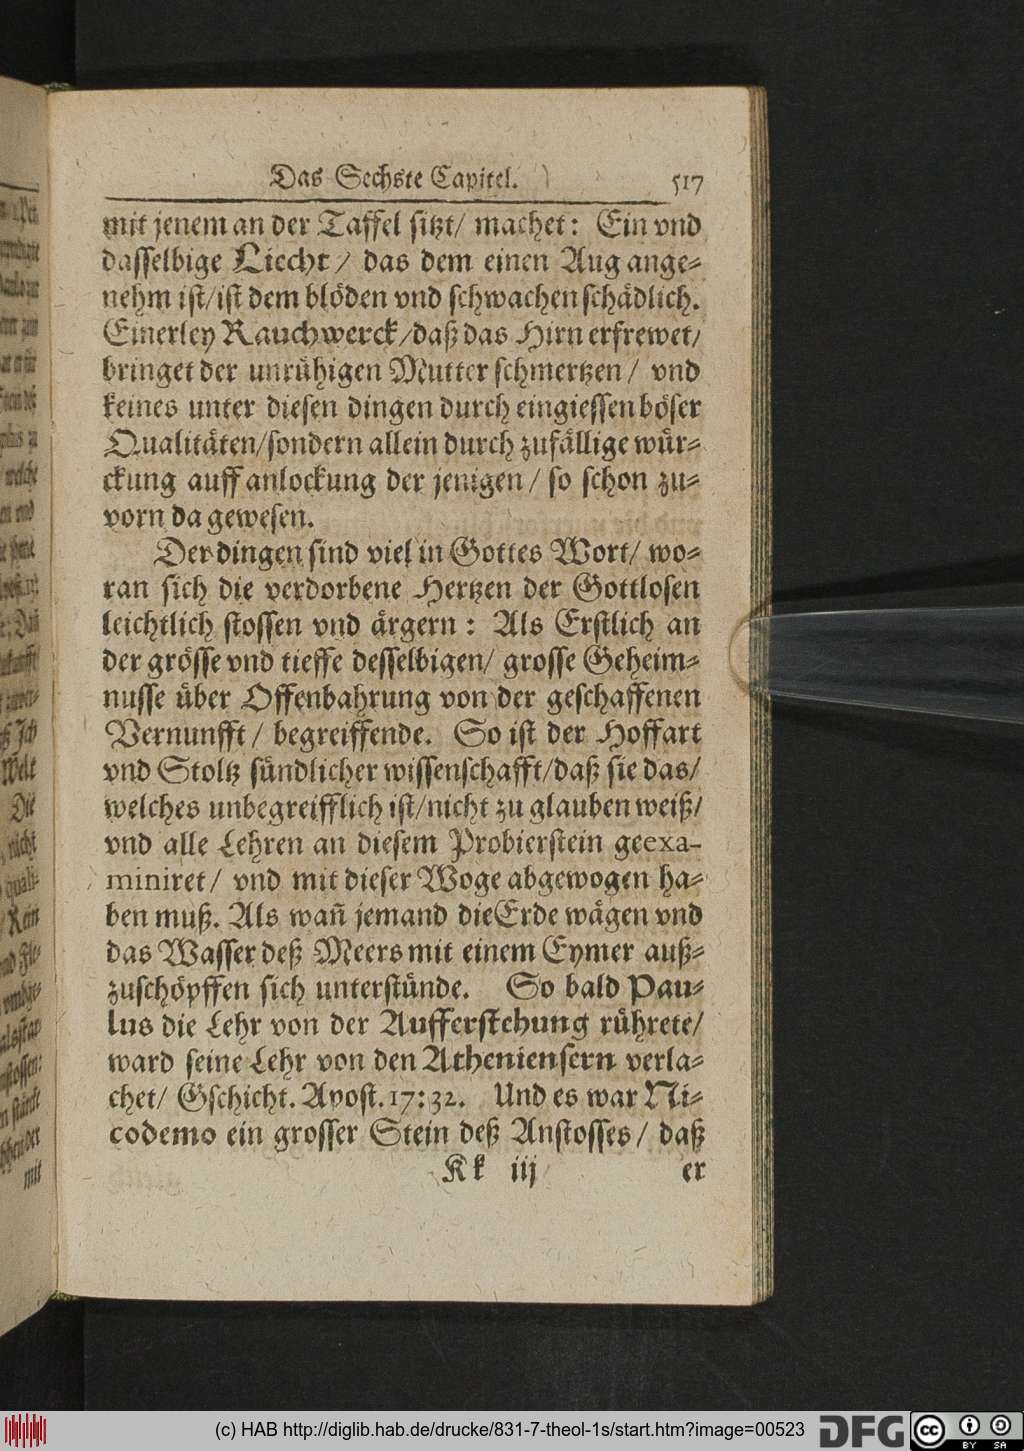 Das Sechste Capitel. 517
mit jenem an der Taffel sitzt/ machet: Ein vnd
dasselbige Liecht/ das dem einen Aug ange-
nehm ist/ist dem blöden vnd schwachen schädlich.
Einerley Rauchwerck/daß das Hirn erfrewet/
bringet der unrühigen Mutter schmertzen/ vnd
keines unter diesen dingen durch eingiessen böser
Qualitäten/sondern allein durch zufällige wür-
ckung auff anlockung der jenigen/ so schon zu-
vorn da gewesen.
Der dingen sind viel in Gottes Wort/ wo-
ran sich die verdorbene Hertzen der Gottlosen
leichtlich stossen vnd ärgern: Als Erstlich an
der grösse vnd tieffe desselbigen/ grosse Geheim-
nusse über Offenbahrung von der geschaffenen
Vernunfft/ begreiffende. So ist der Hoffart
vnd Stoltz sündlicher wissenschafft/daß sie das/
welches unbegreifflich ist/nicht zu glauben weiß/
vnd alle Lehren an diesem Probierstein geexa-
miniret/ vnd mit dieser Woge abgewogen ha-
ben muß. Als wañ jemand die Erde wägen vnd
das Wasser deß Meers mit einem Eymer auß-
zuschöpffen sich unterstünde. So bald Pau-
lus die Lehr von der Aufferstehung rührete/
ward seine Lehr von den Atheniensern verla-
chet/ Gschicht. Apost. 17:32. Und es war Ni-
codemo ein grosser Stein deß Anstosses/ daß
Kk iij er
mit
(c) HAB http://diglib.hab.de/drucke/831-7-theol-1s/start.htm?image=00523
DFG
cc
BY SA